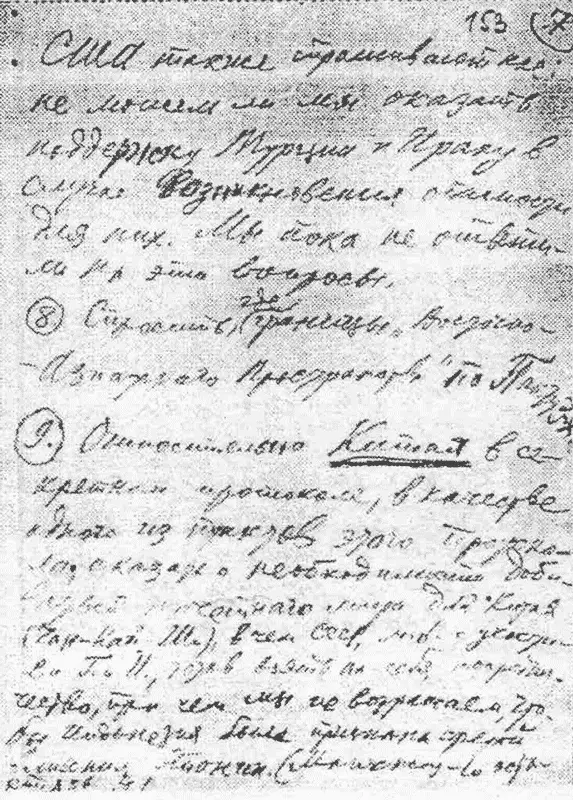 153 7
США также спрашивают нас,
не можем ли мы оказать
поддержку Турции и Ираку в
случае возникновения опасности
для них. Мы пока не ответи-
ли на эти вопросы.
⑧ Спросить, где границы „Восточно-
-Азиатского Пространства" по Пакту
9. Относительно Китая в се-
кретном протоколе, в качестве
одного из пунктов этого протоко-
ла, сказать о необходимости доби-
ваться почетного мира для Китая
(Чан-Кай-Ши), в чем СССР, м.б. с участи-
ем Г. и И., готов взять на себя посредни-
чество, при чем мы не возражаем, что-
бы Индонезия была признана сферой
влияния Японии. (Маньчжоу-Го